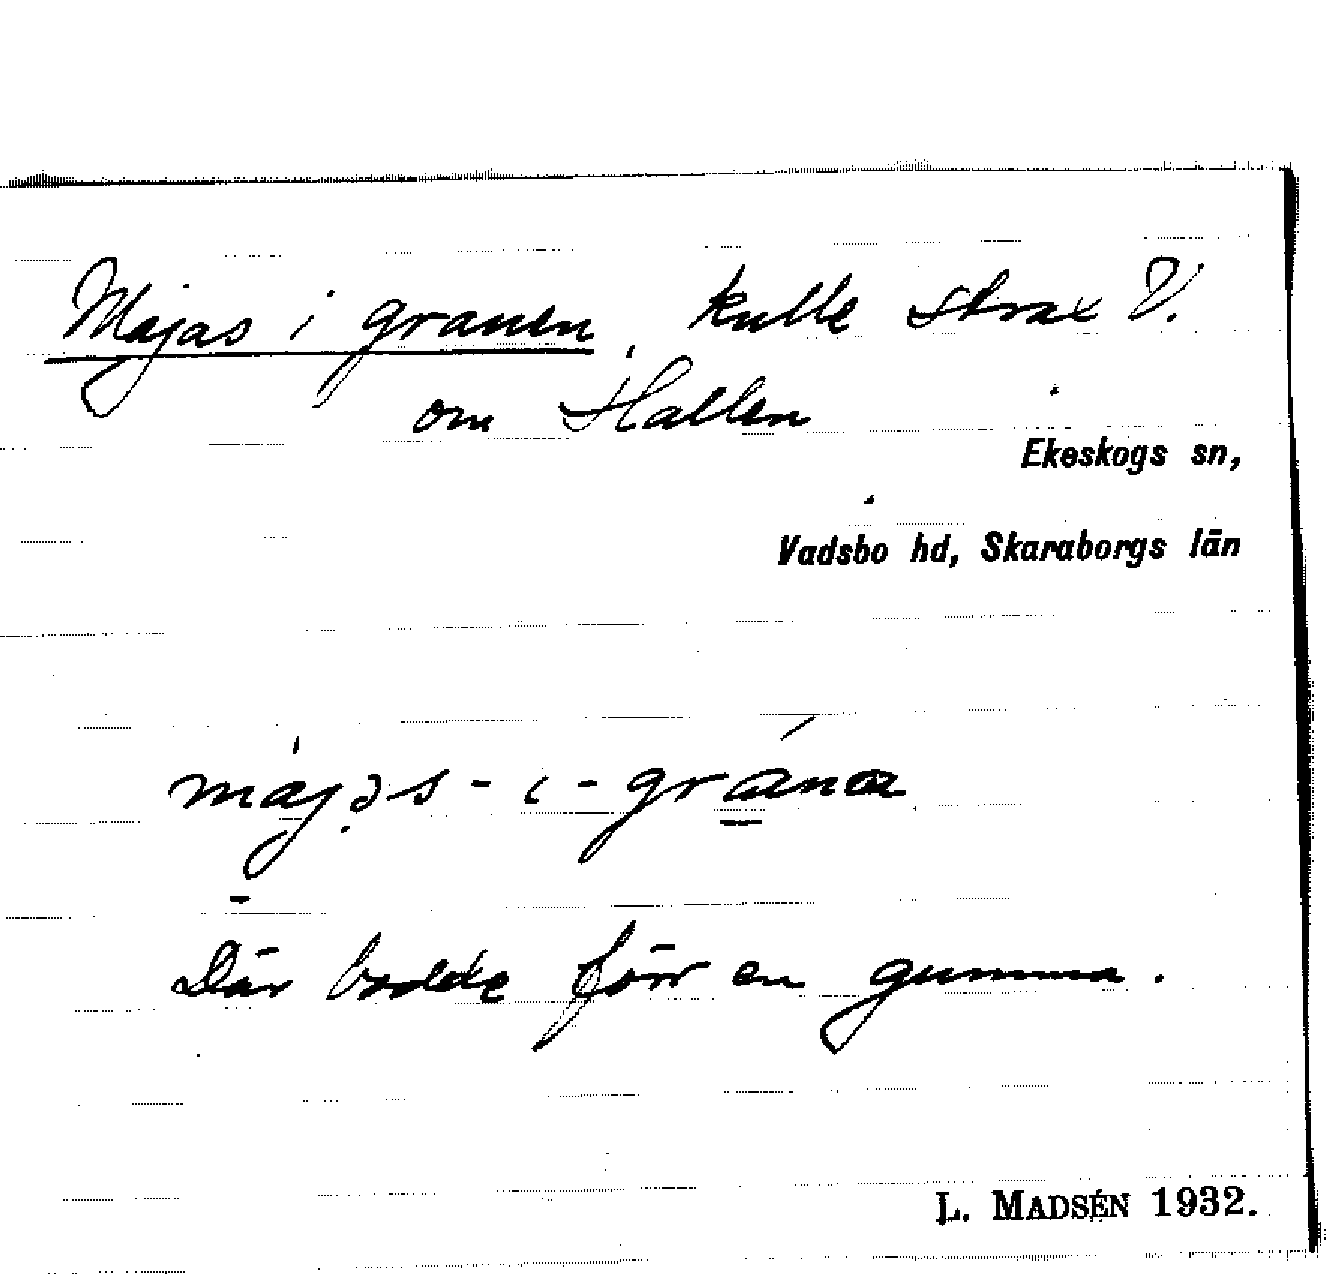 Majas i granen, kulle strax V.
om Hallen
Ekeskogs sn,
Vadsbo hd, Skaraborgs län
májəs-ɩ-grána
Där bodde förr en gumma.
L. MADSÉN 1932.